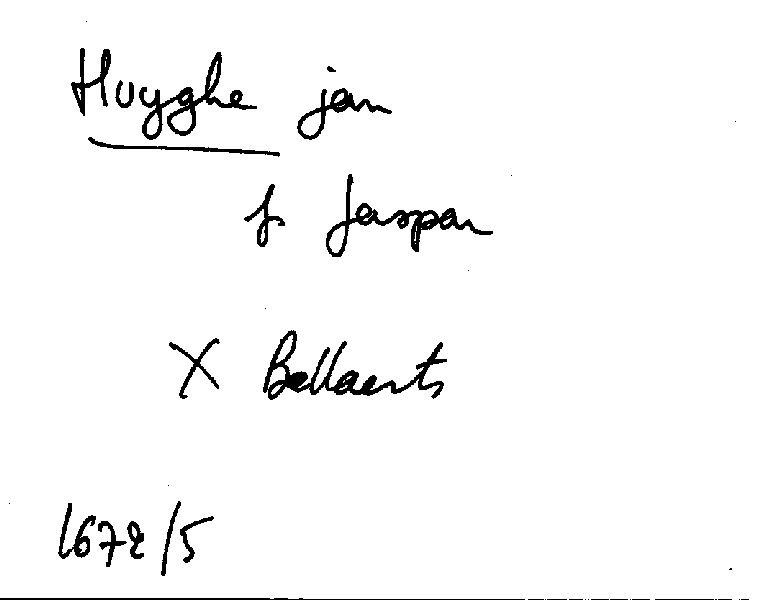 Huyghe jan
fs Jaspar
X Bellaerts
1672/5